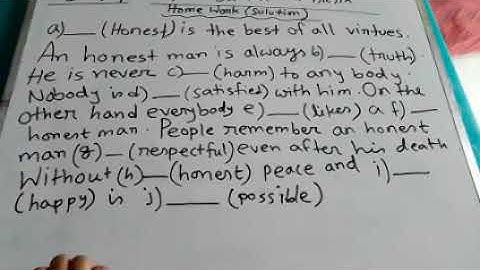 Home Work (Solution)
a)___ (Honest) is the best of all virtues.
An honest man is always b)___ (truth).
He is never c)___ (harm) to any body.
Nobody is d)___ (satisfied) with him. On the
other hand everybody e)___ (likes) a f)___
honest man. People remember an honest
man (g)___ (respectful) even after his death
Without (h)___ (honest) peace and i)___
(happy) is j)___ (possible)